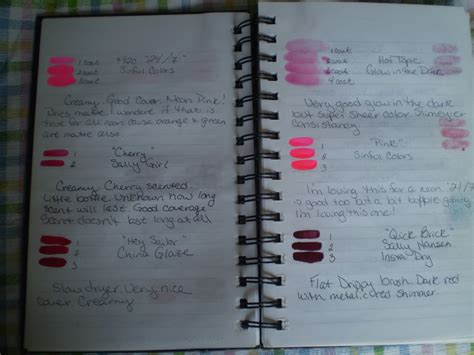 1 coat #920 "24/7"
2 coats Sinful Colors
3 coats
Creamy. Good Cover. Neon Pink!
Dries matte! I wonder if that is
true for all neon cause orange & green
are matte also.
1 "Cherry"
2 Sally Girl
Creamy Cherry scented.
Little bottle unknown how long
scent will last. Good coverage
Scent doesn't last long at all
1 "Hey Sailor"
2 China Glaze
3
Slow dryer. Very nice
cover. Creamy
1 coat Hot Topic
2 coat Glow in the Dark
3 coat
4 coat
Very good glow in the dark
but super sheer color. Shimmer
consistancy.
1 "Pink"
2 Sinful Colors
3
I'm loving this for a neon "24/7
is good too but a bit
I'm loving this one!
1 "Quick Brick"
2 Sally Hansen
3 Insta Dry
Flat Drippy brush Dark red
with metalic red shimmer.